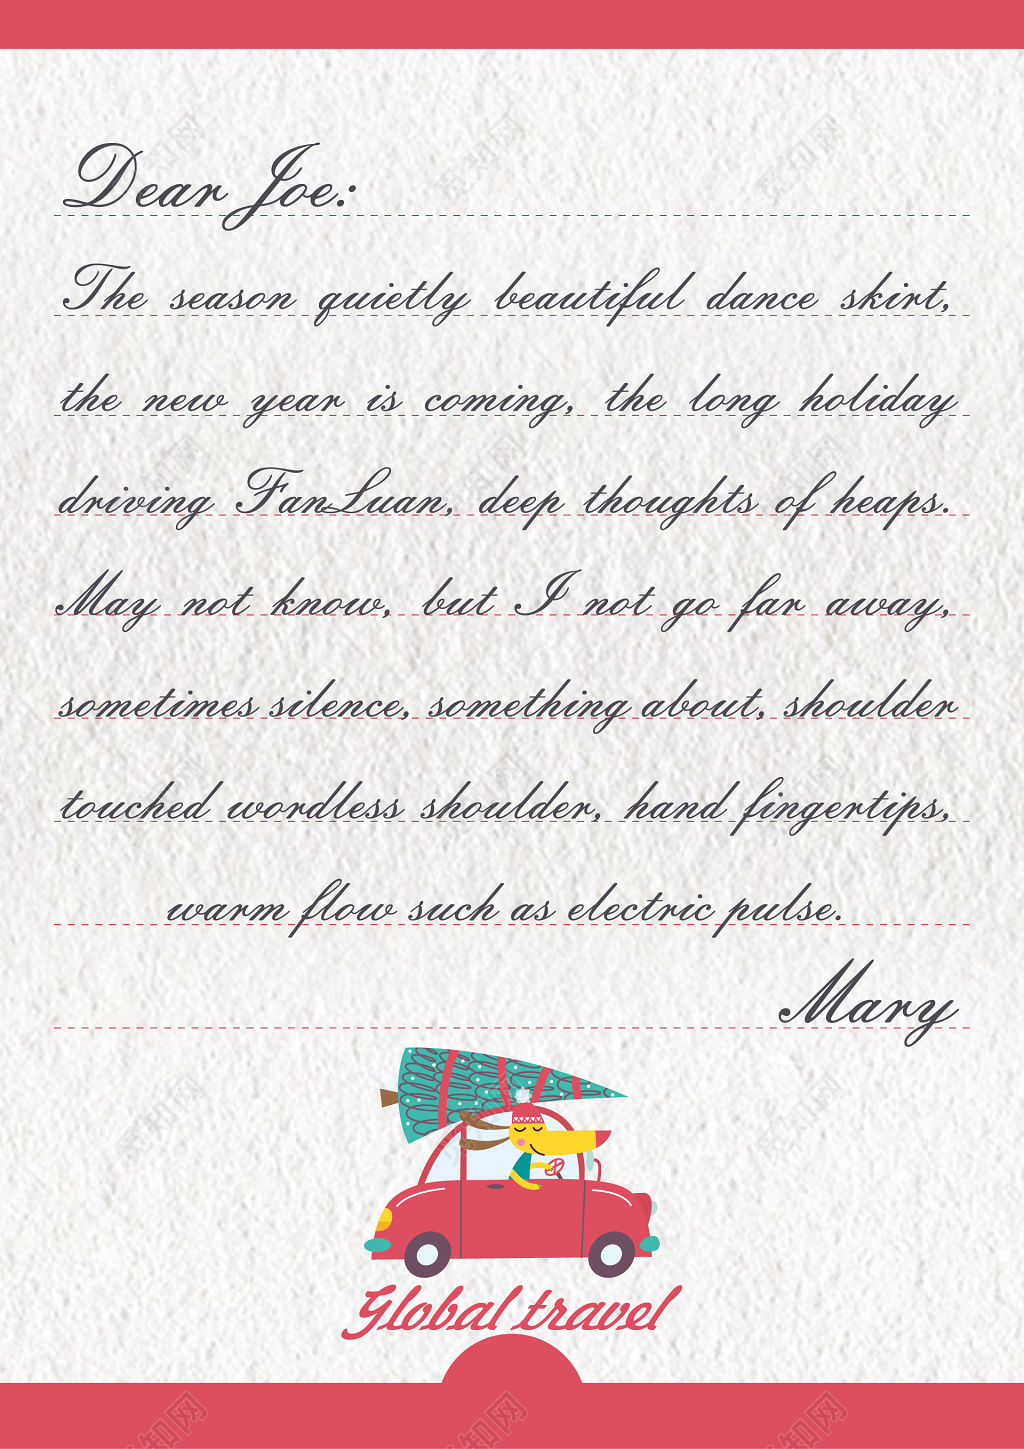 Dear Joe:
The season quietly beautiful dance skirt,
the new year is coming, the long holiday
driving FanLuan, deep thoughts of heaps.
May not know, but I not go far away,
sometimes silence, something about, shoulder
touched wordless shoulder, hand fingertips,
warm flow such as electric pulse.
Mary
Global travel